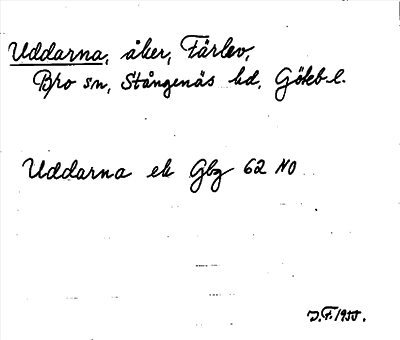 Uddarna, åker, Färlev,
Bro sn, Stångenäs hd, Göteb. l.
Uddarna ek Gbg 62 NO
J.F. 1955.